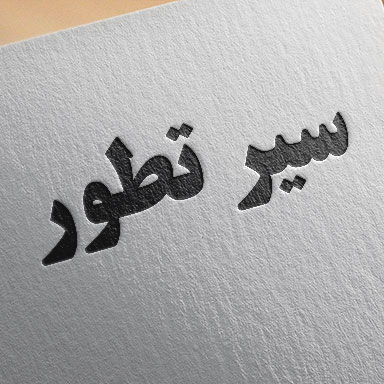 سیر تطور